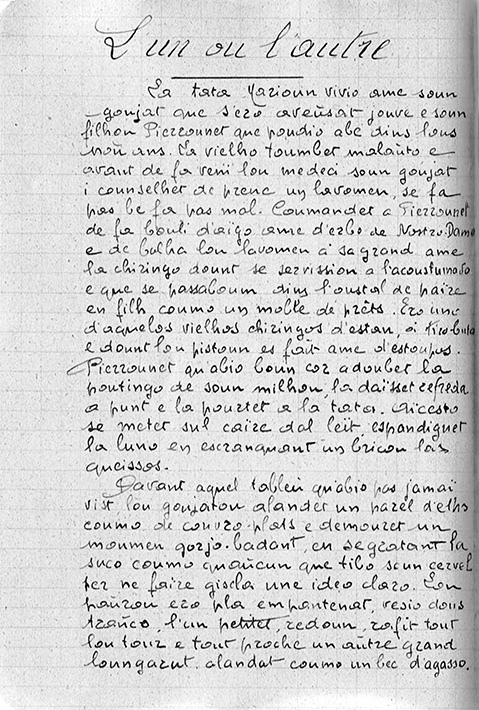 L'un ou l'autre
La tata Marioun vivio ame soun
goujat que s'ero aveusat jouve e soun
filhou Pierrounet que poudio abe dins lous
noŭ ans. La vielho toumbet malaŭto e
avant de fa veni lou medeci soun goujat
i counselhet de prene un lavomen, se fa
pas be fa pas mal. Coumandet a Pierrounet
de fa bouli d'aigo ame d'erbo de Nostro-Damo
e de balha lou lavomen a sa grand ame
la chiringo dount se servission a l'acoustumado
e que se passaboun dins l'oustal de paire
en filh coumo un moble de prêts. Ero uno
d'aquelos vielhos chiringos d'estan, a tiro-buto
e dount lou pistoun es fait ame d'estoupos.
Pierrounet qu'abio boun cor adoubet la
poutingo de soun milhou, la daisset refreda
a punt e la pourtet a la tata. Aicesto
se metet sul caire dal leit espandiguet
la luno en escranquant un bricou las
queissos.
Davant aquel tableŭ qu'abio pas jamaï
vist, lou goujatou alandet un parel d'elhs
coumo de couvro-plats e demouret un
moumen gorjo-badant, en se gratant la
suco coumo quaŭcun que tibo soun cervel
per ne faire giscla une ideo claro. Lou
paŭrou ero pla empantenat, vesio dous
traŭcs, l'un petitet, redoun, rafit tout
lou tour e tout proche un aŭtre grand
loungarut, alandat coumo un bec d'agasso.